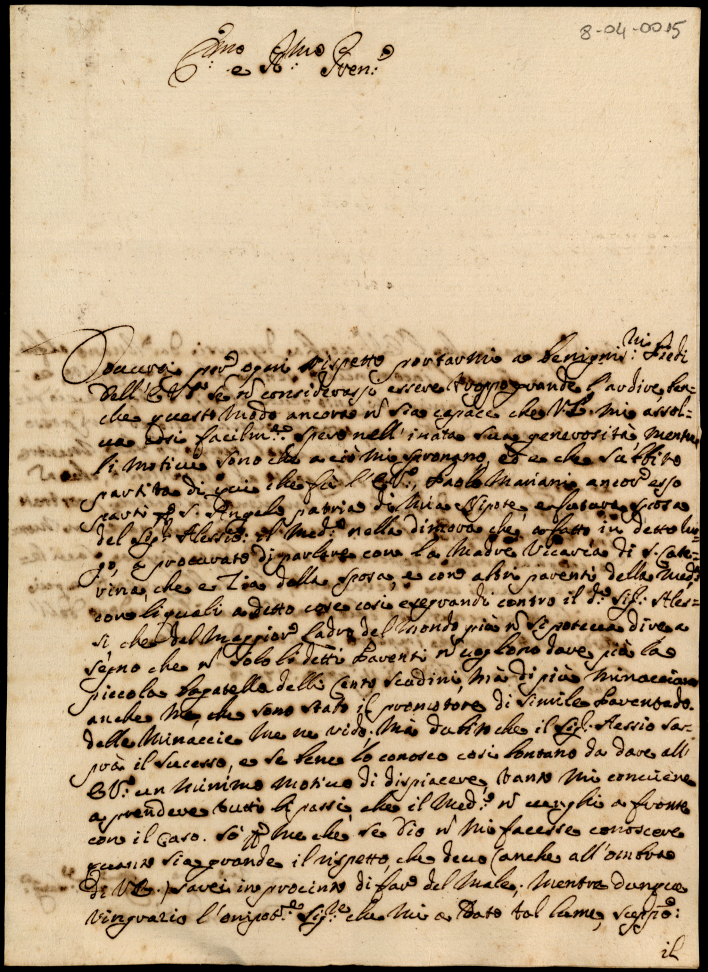 8-04-0015
Em̃o Pr̃mo
e S.r Pren.e
Doveva per ogni rispetto portarmi a benignis.mi Piedi
dell'E.V. se ñ considerasse essere troppo grande l'ardire, ben
che questo modo ancora ñ sia capace che V.E. mi assol-
va così facilm.te spero nell'inata sua generosità, mentre
li motivi sono che a ciò mi spronano, ed e che subbito
partito di qui che fù l'E.V., Paolo Mariani ancor esso
partì p S. Angelo patria di mia Nipote, e futura sposa
del Sig.r Alessio: il Med.o nella dimora che a fatto in detto luo-
go, a procurato di parlare con la Madre Vicaria di S. Cate-
rina, che e Zia della sposa, e con altri parenti della Med.a
con li quali a detto cose così esegrandi contro il d.o Sig.r Ales-
si, che del maggior ladro del mondo più ñ si poteva dire a
segno che ñ solo li detti Parenti ñ vogliono dare più la
piccola bagatella delli cento scudini, mà di più minacciano
anche me, che sono stato il promotore di simile Parentado.
delle minaccie me ne rido, mà dubito che il Sig.r Alessio sa-
prà il sucesso, e se bene lo conosco così lontano da dare all'
E.V. un minimo motivo di dispiacere, tanto mi conviene
a prendere tutti li passi, che il Med.o ñ venghi a fronte
con il caso. Sò p me che se Dio ñ mi facesse conoscere
quanto sia grande il rispetto, che devo (anche all'ombra
di V.E.) sarei in procinto di far del male, mentre dunque
ringrazio l'onipot.te Sig.re che mi a dato tal lume, supplico:
il